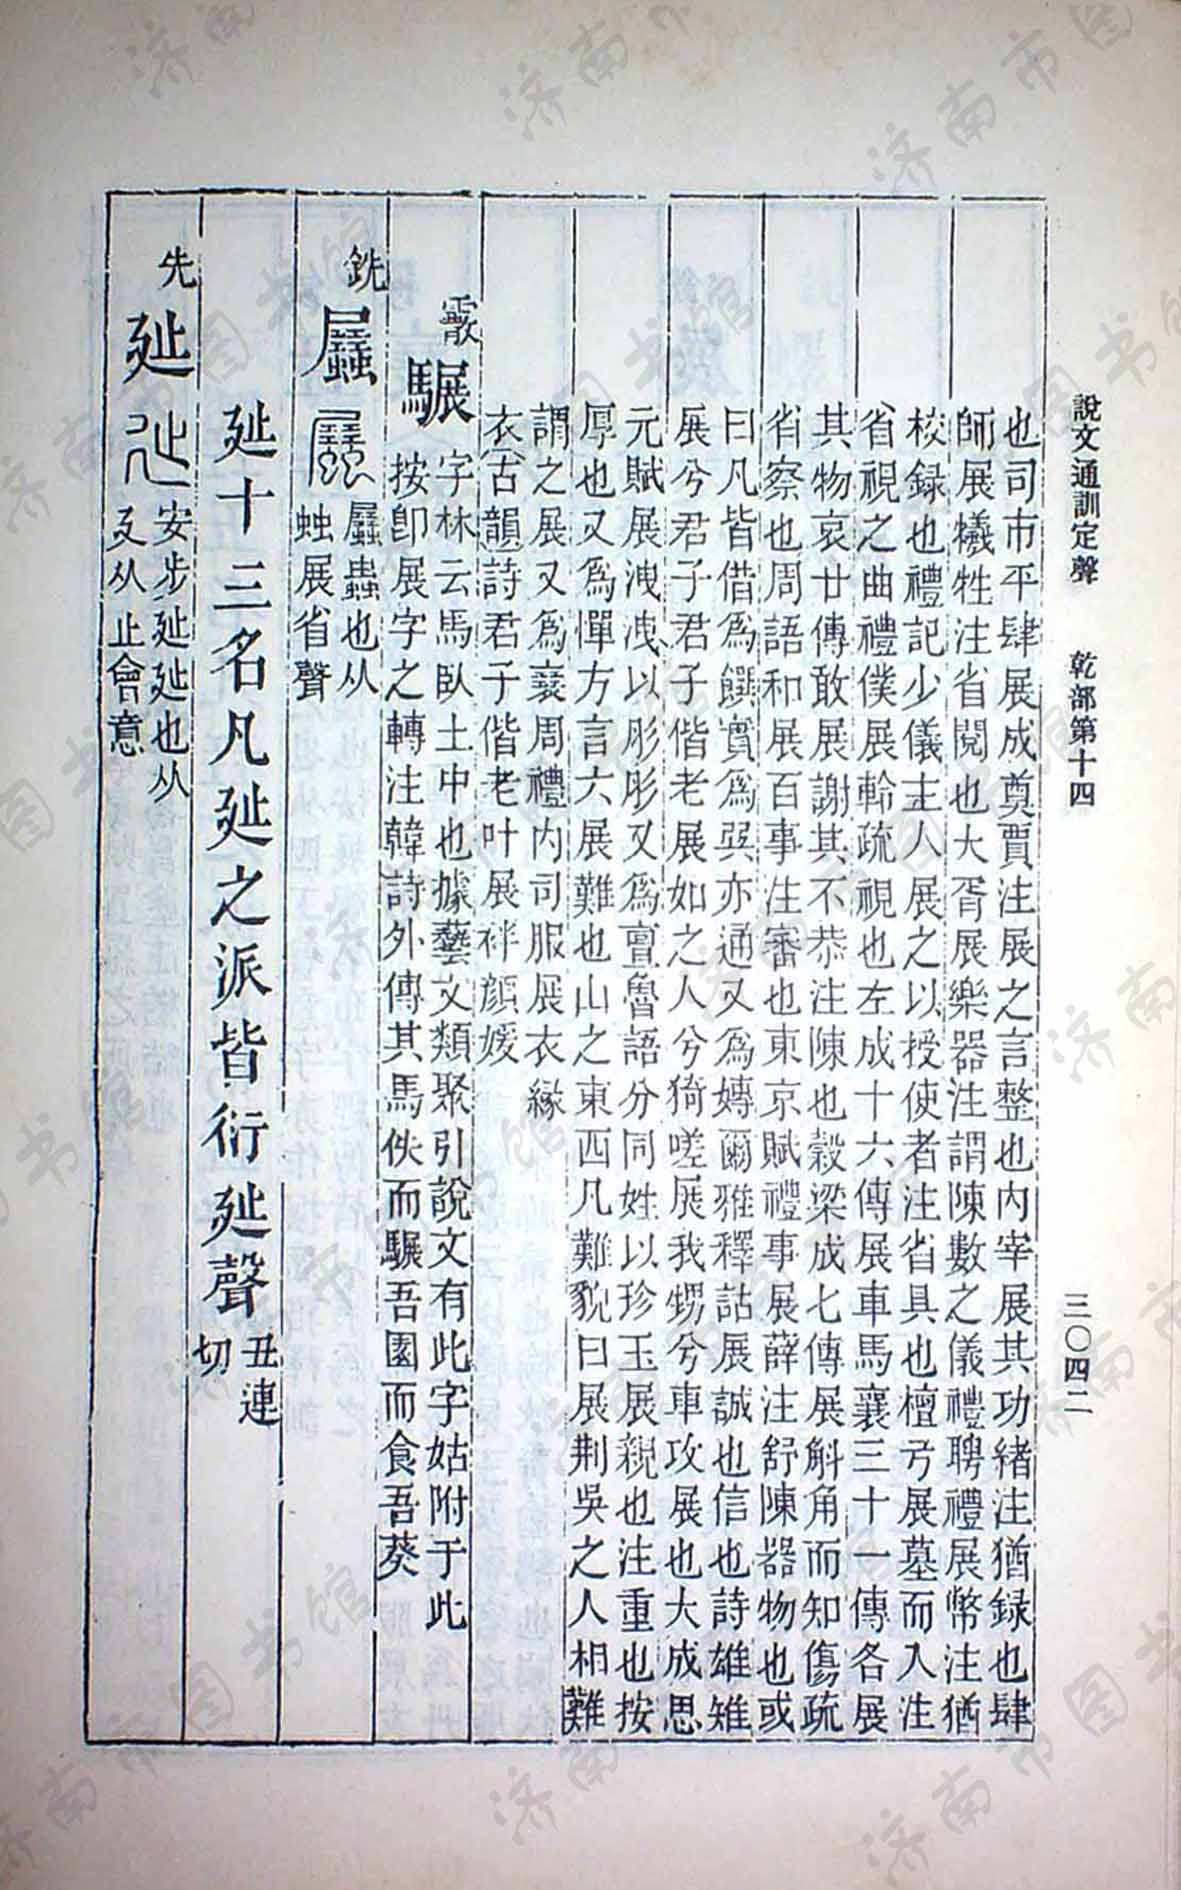 說文通訓定聲　乾部第十四　三〇四二
也司市平肆展成奠賈注展之言整也內宰展其功緒注猶錄也肆
師展犧牲注省閱也大胥展樂器注謂陳數之儀禮聘禮展幣注猶
校錄也禮記少儀主人展之以授使者注省具也檀弓展墓而入注
省視之曲禮僕展軨疏視也左成十六傳展車馬襄三十一傳各展
其物哀廿傳敢展謝其不恭注陳也穀梁成七傳展斛角而知傷疏
省察也周語和展百事注審也東京賦禮事展薛注舒陳器物也或
曰凡皆借為饌實為㠭亦通又為嫥爾雅釋詁展誠也信也詩雄雉
展兮君子君子偕老展如之人兮猗嗟展我甥兮車攻展也大成思
元賦展洩洩以肜肜又為亶魯語分同姓以珍玉展親也注重也按
厚也又為憚方言六展難也山之東西凡難貌曰展荆吳之人相難
謂之展又為襄周禮內司服展衣緣
衣古韻詩君子偕老叶展袢顏媛
霰 驏 字林云馬臥土中也據藝文類聚引說文有此字姑附于此
按卽展字之轉注韓詩外傳其馬佚而驏吾園而食吾葵
銑 蟨 蟨蟲也从
䖵展省聲
㢟十三名凡㢟之派皆衍㢟聲 丑連
切
先 㢟 安步㢟㢟也从
廴从止會意